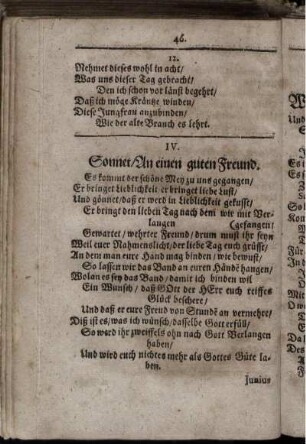 46.
12.
Nehmet dieses wohl in acht/
Was uns dieser Tag gebracht/
Den ich schon vor länst begehrt/
Daß ich möge Kräntze winden/
Diese Jungfrau anzubinden/
Wie der alte Brauch es lehrt.
IV.
Sonnet/An einen guten Freund.
Es kommt der schöne Mey zu uns gegangen/
Er bringet Lieblichkeit er bringet liebe Lust/
Und gönnet/daß er werd in Lieblichkeit gekusst/
Er bringt den lieben Tag nach dem wir mit Ver-
langen (gefangen/
Gewartet/ wehrter Freund/ drum muß ihr seyn
Weil euer Nahmenslicht/der liebe Tag euch grüsse/
An dem man eure Hand mag binden/ wie bewust/
So lassen wir das Band an euren Händẽ hangen/
Wolan es sey das Band/ damit ich binden wil
Ein Wunsch/ daß GOtt der HErr euch reiffes
Glück beschere/
Und daß er eure Freud von Stund an vermehre/
Diß ist es/ was ich wünsch/dasselbe Gott erfüll/
So werd ihr zweiffels ohn nach Gott Verlangen
haben/
Und wird euch nichtes mehr als Gottes Güte la-
ben.
Junius